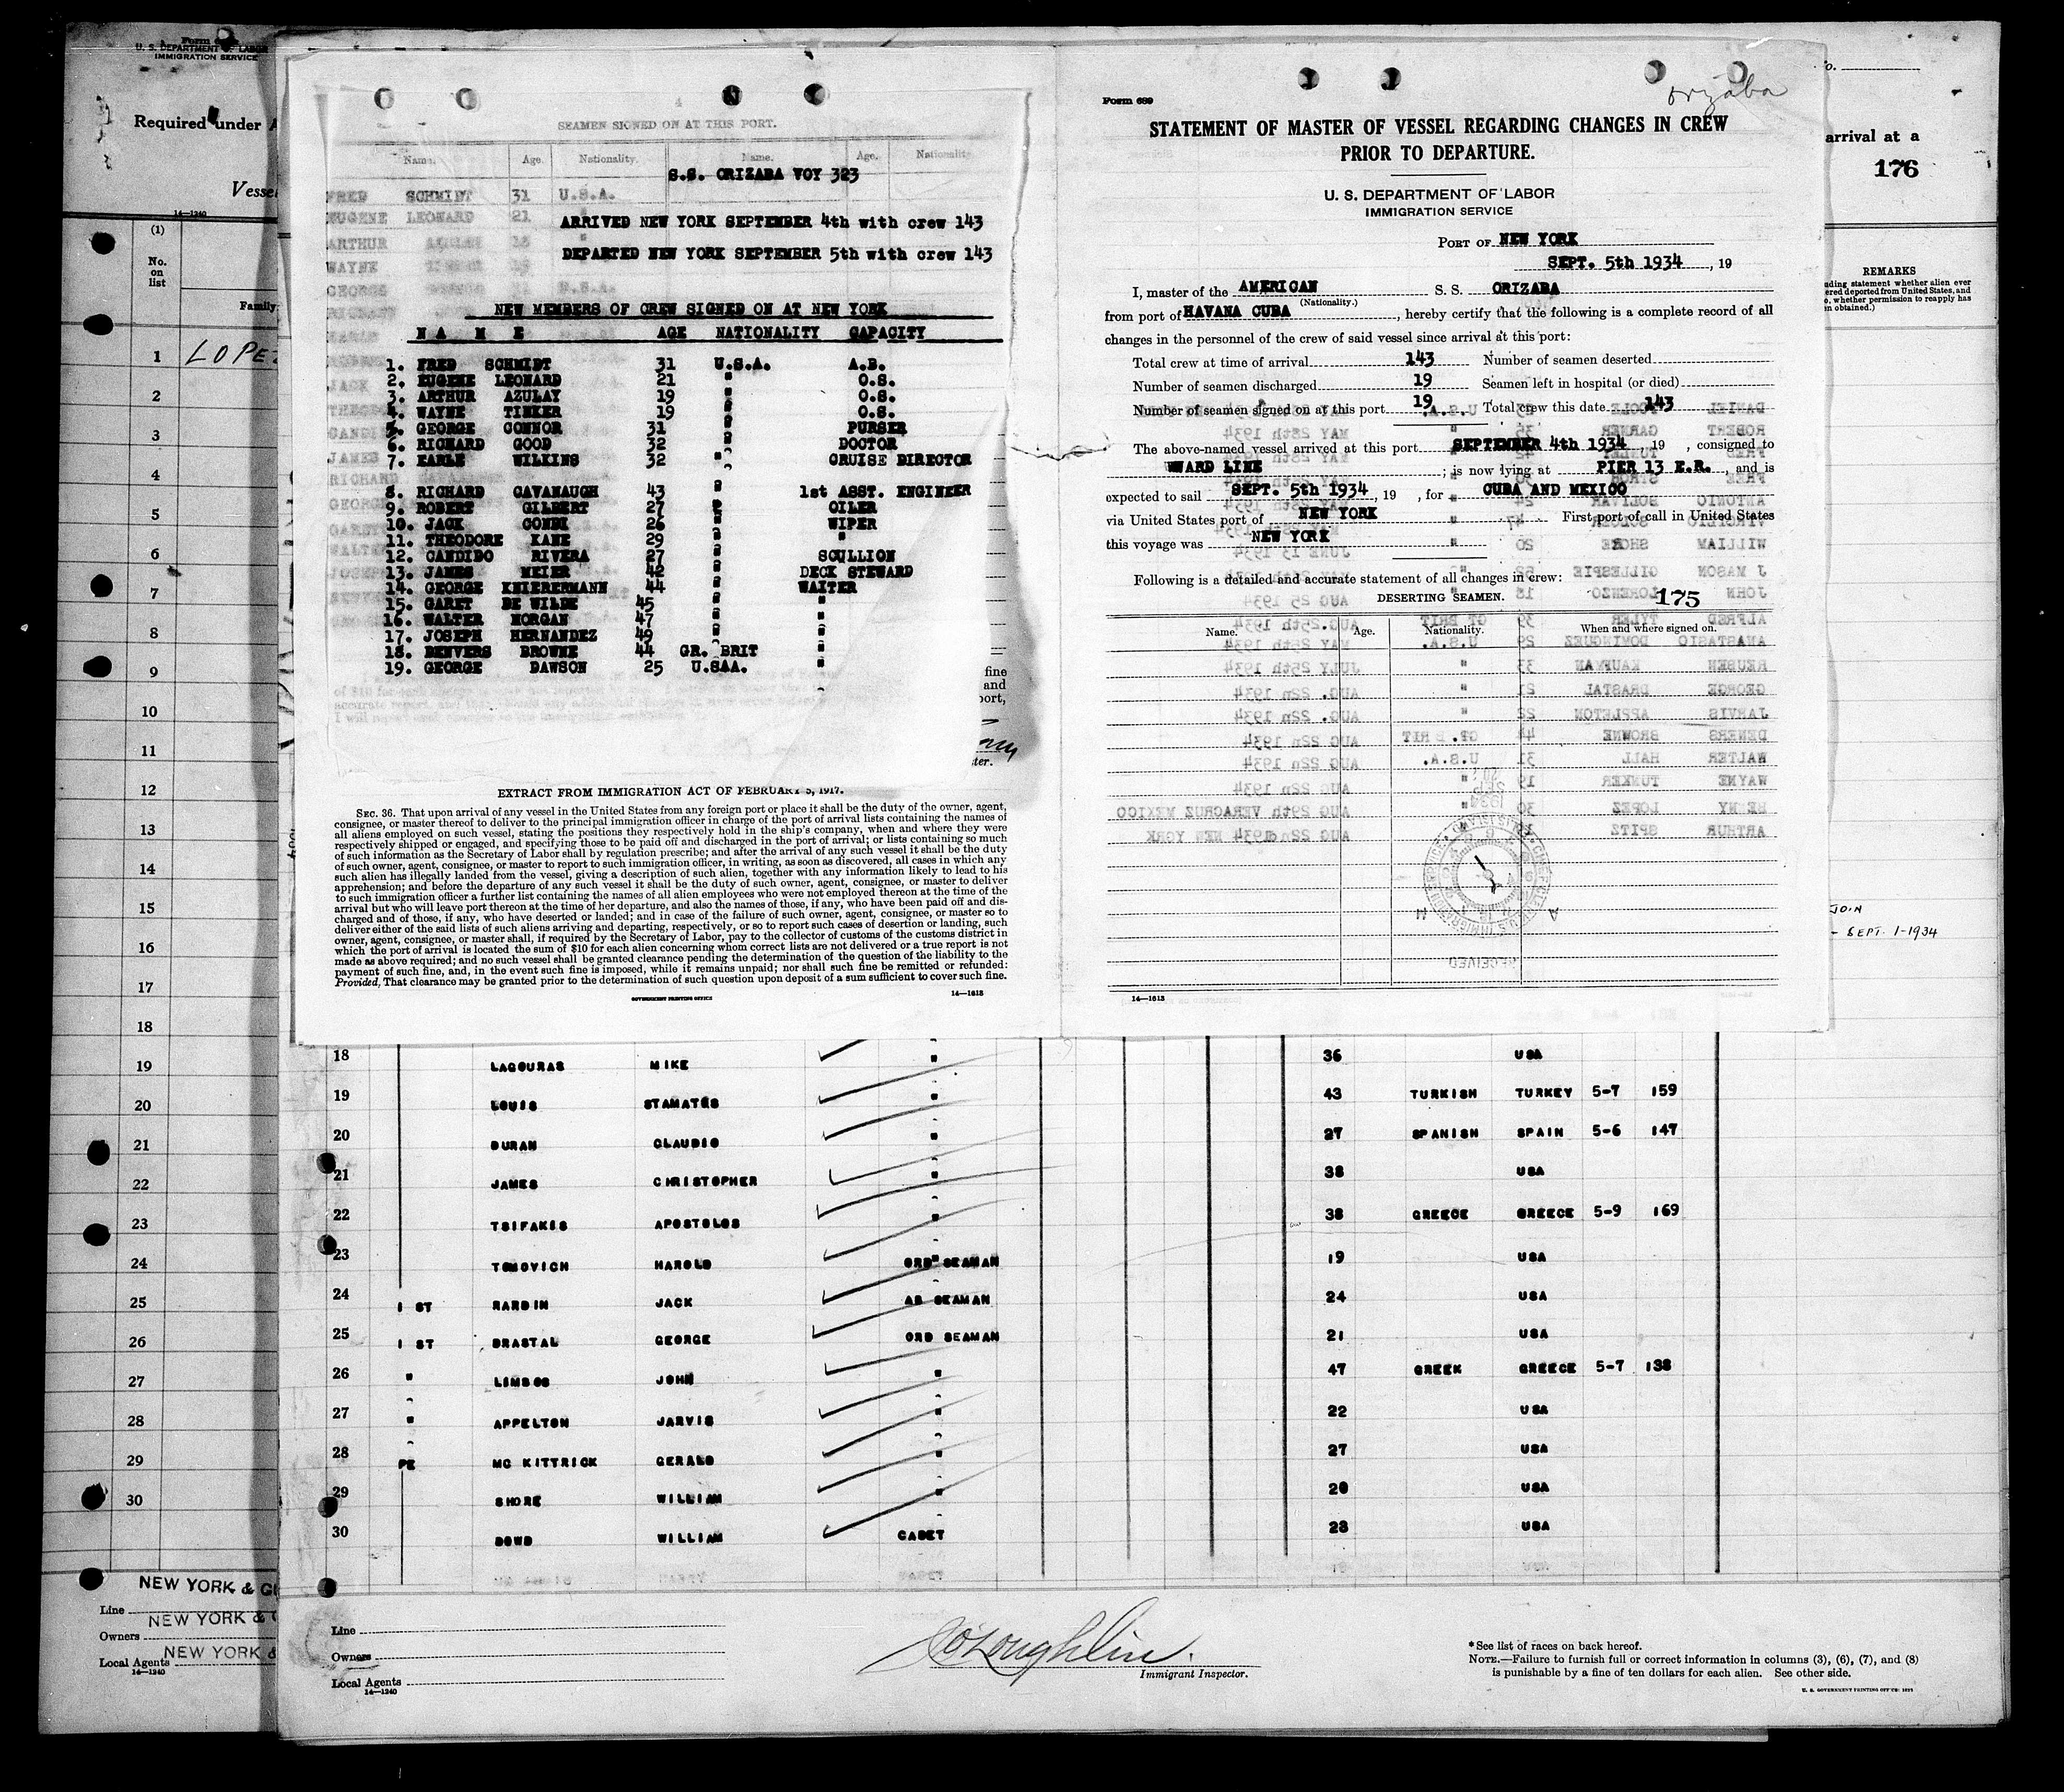 Form
U. S. DEPARTMENT OF LABOR
IMMIGRATION SERVICE
Required under A
Vessel
14—1240
(1)
No.
on
list
Family
1 LOPEZ
2
3
4
5
6
7
8
9
10
11
12
13
14
15
16
17
18
19
20
21
22
23
24
25
26
27
28
29
30
NEW YORK & CU
Line
NEW YORK & C
Owners
NEW YORK &
Local Agents
14—1240
4
SEAMEN SIGNED ON AT THIS PORT.
Name. Age. Nationality. Name. Age. Nationality
S.S. ORIZABA VOY 323
FRED SCHMIDT 31 U.S.A.
EUGENE LEONARD 21
ARRIVED NEW YORK SEPTEMBER 4th with crew 143
ARTHUR
DEPARTED NEW YORK SEPTEMBER 5th with crew 143
WAYNE
GEORGE U.S.A.
NEW MEMBERS OF CREW SIGNED ON AT NEW YORK
N A M E AGE NATIONALITY CAPACITY
1. FRED SCHMIDT 31 U.S.A. A.B.
2. EUGENE LEONARD 21 " O.S.
3. ARTHUR AZULAY 19 " O.S.
4. WAYNE TINKER 19 " O.S.
5. GEORGE CONNOR 31 " PURSER
6. RICHARD GOOD 32 " DOCTOR
7. EARLE WILKINS 32 " CRUISE DIRECTOR
8. RICHARD CAVANAUGH 43 " 1st ASST. ENGINEER
9. ROBERT GILBERT 27 " OILER
10. JACK CONDI 26 " WIPER
11. THEODORE KANE 29 " "
12. CANDIDO RIVERA 27 " SCULLION
13. JAMES MEIER 42 " DECK STEWARD
14. GEORGE KNIERERMANN 44 " WAITER
15. GARET DE WILDE 45 " "
16. WALTER MORGAN 47 " "
17. JOSEPH HERNANDEZ 49 " "
18. DENVERS BROWNE 44 GR. BRIT "
19. GEORGE DAWSON 25 U.SAA. "
fine
and
port,
ter.
EXTRACT FROM IMMIGRATION ACT OF FEBRUARY 5, 1917.
SEC. 36. That upon arrival of any vessel in the United States from any foreign port or place it shall be the duty of the owner, agent,
consignee, or master thereof to deliver to the principal immigration officer in charge of the port of arrival lists containing the names of
all aliens employed on such vessel, stating the positions they respectively hold in the ship's company, when and where they were
respectively shipped or engaged, and specifying those to be paid off and discharged in the port of arrival; or lists containing so much
of such information as the Secretary of Labor shall by regulation prescribe; and after the arrival of any such vessel it shall be the duty
of such owner, agent, consignee, or master to report to such immigration officer, in writing, as soon as discovered, all cases in which any
such alien has illegally landed from the vessel, giving a description of such alien, together with any information likely to lead to his
apprehension; and before the departure of any such vessel it shall be the duty of such owner, agent, consignee, or master to deliver
to such immigration officer a further list containing the names of all alien employees who were not employed thereon at the time of the
arrival but who will leave port thereon at the time of her departure, and also the names of those, if any, who have been paid off and dis-
charged and of those, if any, who have deserted or landed; and in case of the failure of such owner, agent, consignee, or master so to
deliver either of the said lists of such aliens arriving and departing, respectively, or so to report such cases of desertion or landing, such
owner, agent, consignee, or master shall, if required by the Secretary of Labor, pay to the collector of customs of the customs district in
which the port of arrival is located the sum of $10 for each alien concerning whom correct lists are not delivered or a true report is not
made as above required; and no such vessel shall be granted clearance pending the determination of the question of the liability to the
payment of such fine, and, in the event such fine is imposed, while it remains unpaid; nor shall such fine be remitted or refunded:
Provided, That clearance may be granted prior to the determination of such question upon deposit of a sum sufficient to cover such fine.
GOVERNMENT PRINTING OFFICE 14—1613
Form 689
Orizaba
STATEMENT OF MASTER OF VESSEL REGARDING CHANGES IN CREW
PRIOR TO DEPARTURE.
U. S. DEPARTMENT OF LABOR
IMMIGRATION SERVICE
PORT OF NEW YORK
SEPT. 5th 1934, 19
I, master of the AMERICAN S. S. ORIZABA
(Nationality.)
from port of HAVANA CUBA, hereby certify that the following is a complete record of all
changes in the personnel of the crew of said vessel since arrival at this port:
Total crew at time of arrival 143 Number of seamen deserted
Number of seamen discharged 19 Seamen left in hospital (or died)
Number of seamen signed on at this port 19 Total crew this date 143
The above-named vessel arrived at this port SEPTEMBER 4th 1934 19 , consigned to
WARD LINE ; is now lying at PIER 13 E.R. , and is
expected to sail SEPT. 5th 1934, 19 , for CUBA AND MEXICO
via United States port of NEW YORK First port of call in United States
this voyage was NEW YORK
Following is a detailed and accurate statement of all changes in crew:
DESERTING SEAMEN. 175
Name. Age. Nationality. When and where signed on.
14—1613
o.
arrival at a
176
REMARKS
ding statement whether alien ever
ered deported from United States, and
o, whether permission to reapply has
en obtained.)
JOIN
- SEPT. 1-1934
18 LAGOURAS MIKE " 36 USA
19 LOUIS STAMATES " 43 TURKISH TURKEY 5-7 159
20 DURAN CLAUDIO " 27 SPANISH SPAIN 5-6 147
21 JAMES CHRISTOPHER " 38 USA
22 TSIFAKIS APOSTOLOS " 38 GREECE GREECE 5-9 169
23 TOMOVICH HAROLD ORD SEAMAN 19 USA
24 1 ST RARDIN JACK AB SEAMAN 24 USA
25 1 ST DRASTAL GEORGE ORD SEAMAN 21 USA
26 " LIMBOS JOHN " 47 GREEK GREECE 5-7 138
27 " APPELTON JARVIS " 22 USA
28 PE MC KITTRICK GERALD " 27 USA
29 SHORE WILLIAM " 20 USA
30 DOWD WILLIAM CADET 23 USA
Line
Owners
Local Agents
14—1240
O'Loughlin.
Immigrant Inspector.
*See list of races on back hereof.
NOTE.—Failure to furnish full or correct information in columns (3), (6), (7), and (8)
is punishable by a fine of ten dollars for each alien. See other side.
U. S. GOVERNMENT PRINTING OFFICE